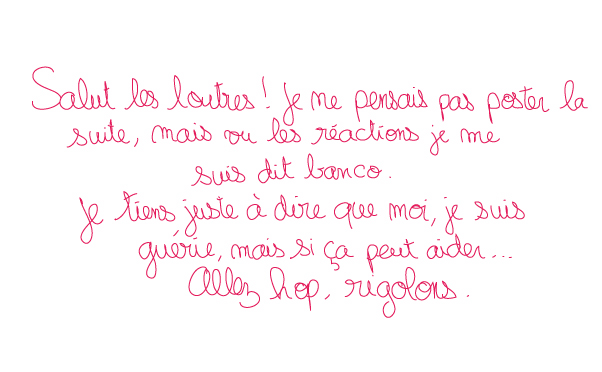 Salut les loutres! Je ne pensais pas poster la
suite, mais vu les réactions je me
suis dit banco.
Je tiens juste à dire que moi, je suis
guérie, mais si ça peut aider...
Allez hop, rigolons.